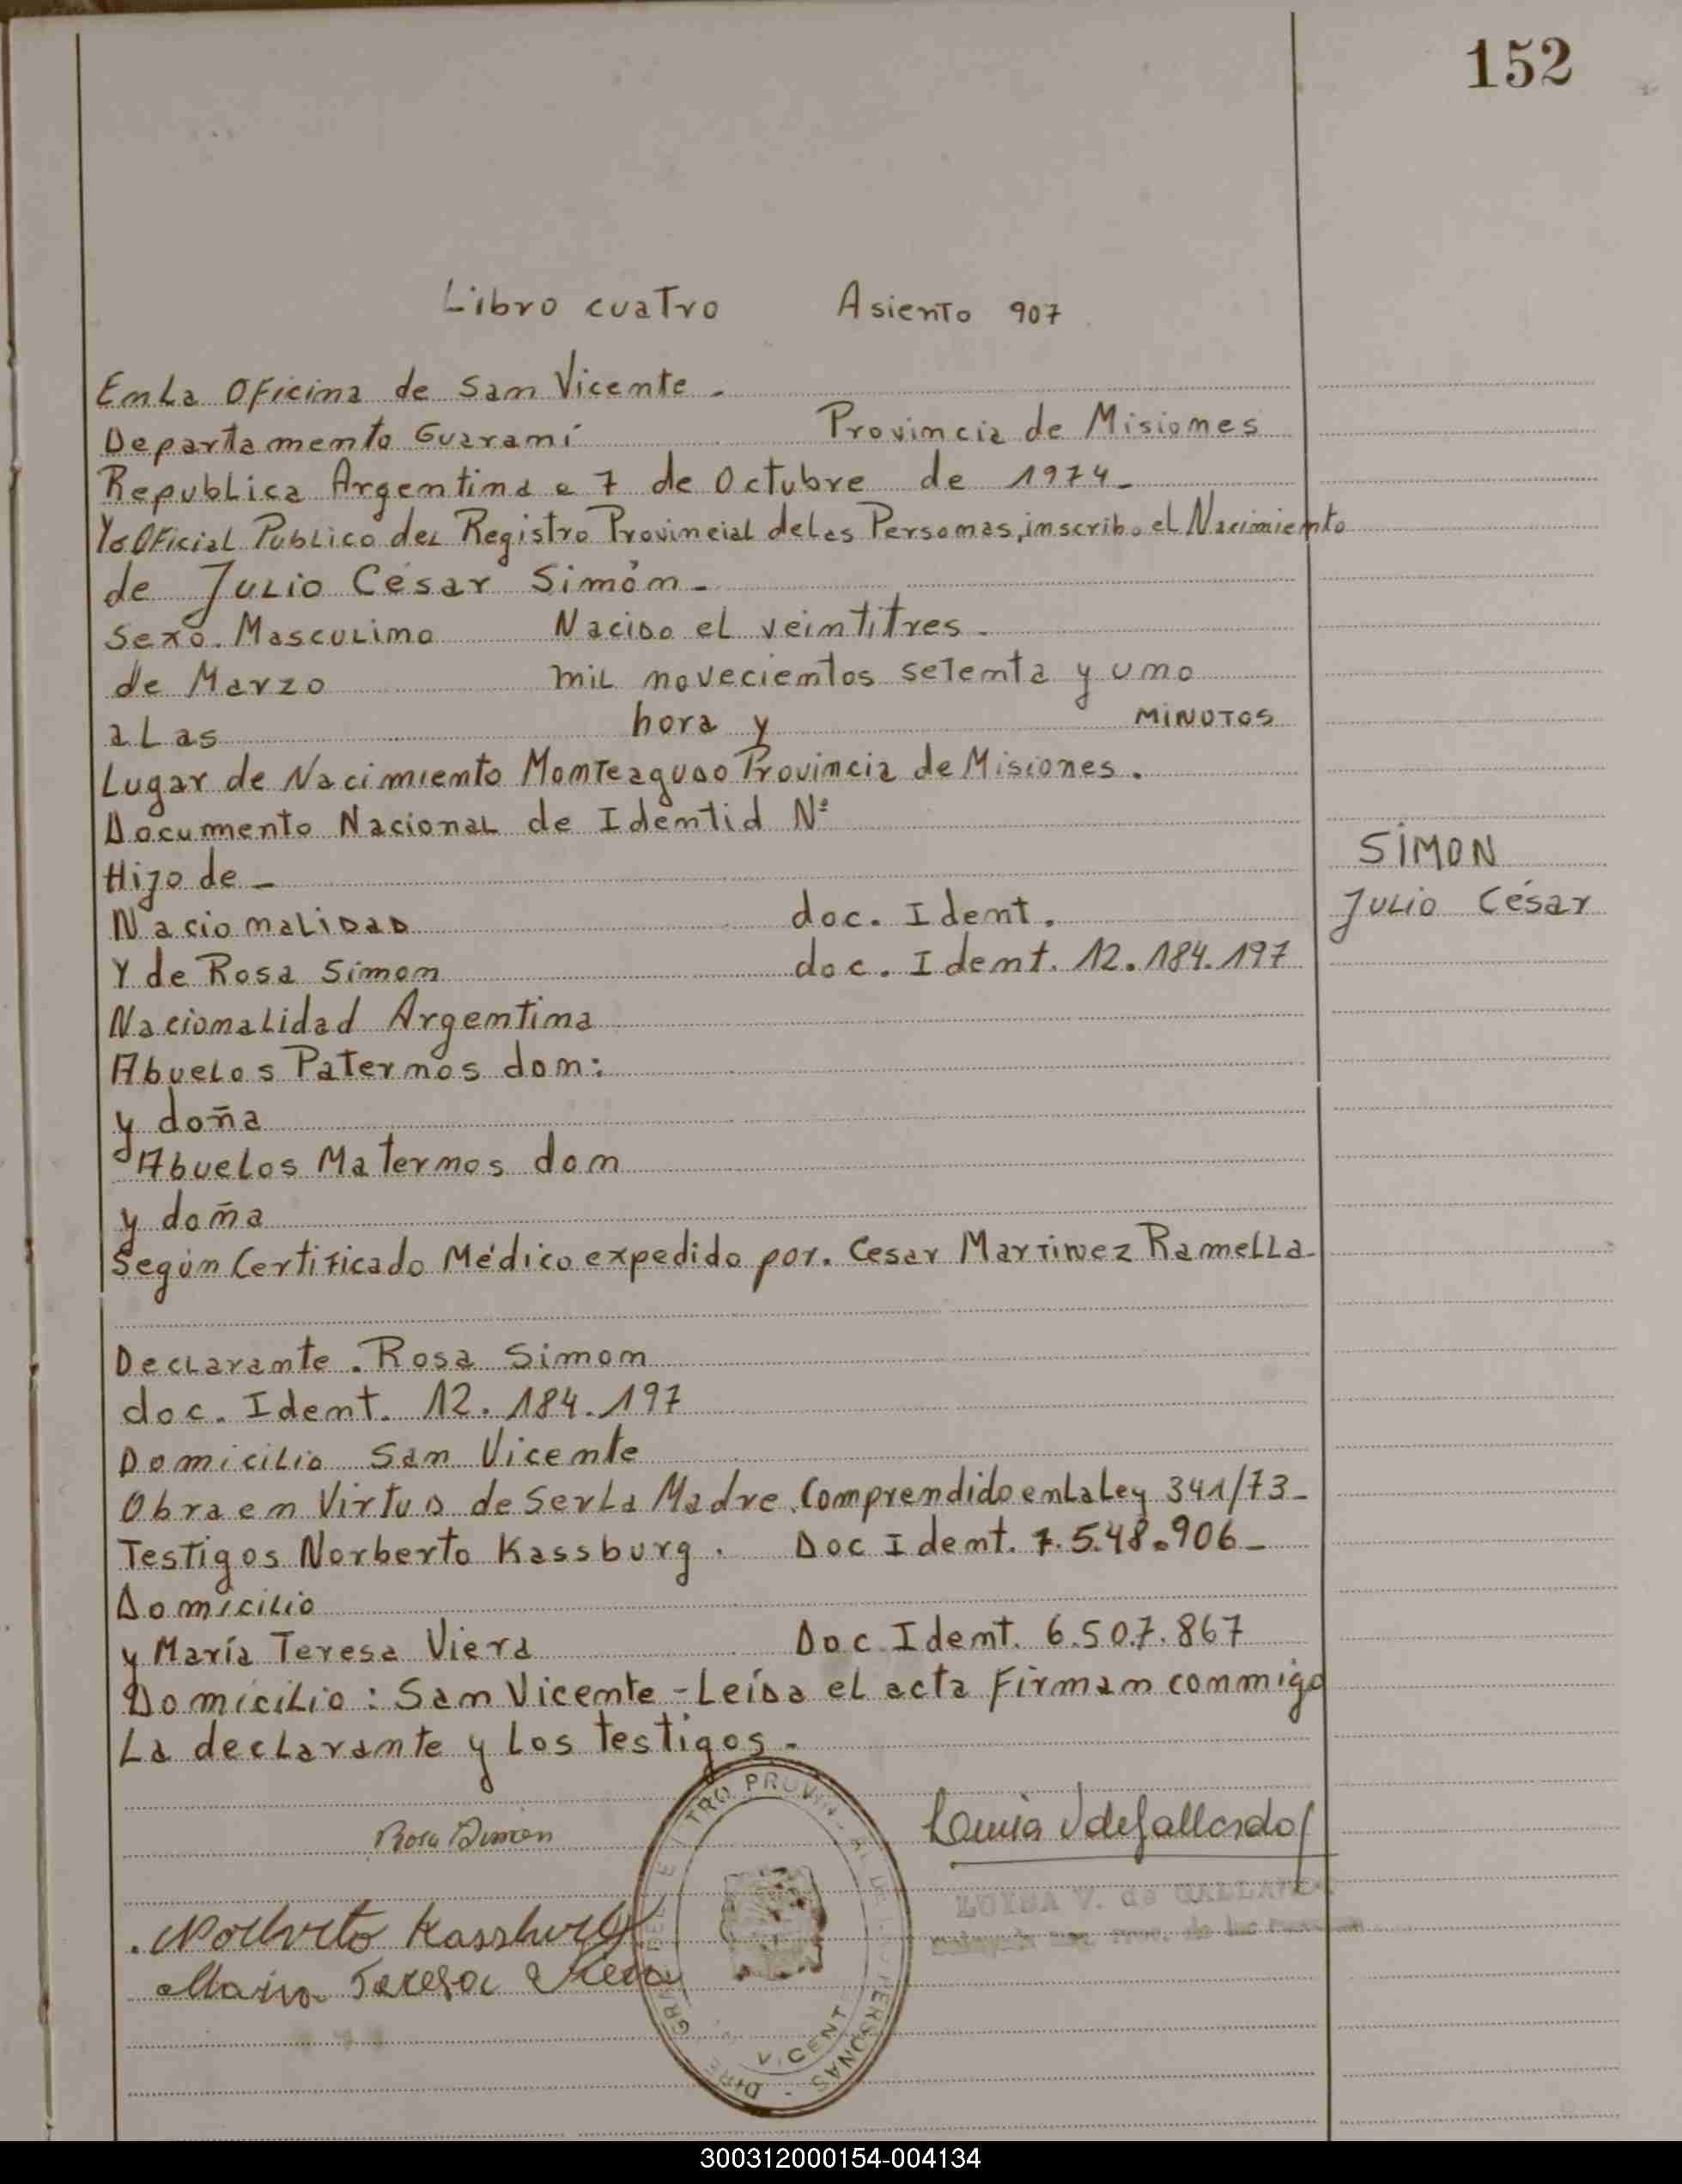 152
Libro cuatro Asiento 907
En La Oficina de San Vicente -
Departamento Guaraní Provincia de Misiones
Republica Argentina a 7 de Octubre de 1974-
Yo Oficial Publico del Registro Provincial de las Personas, inscribo el Nacimiento
de Julio César Simón -
Sexo. Masculino Nacido el veintitres -
de Marzo mil novecientos setenta y uno
a Las hora y MINUTOS
Lugar de Nacimiento Monteagudo Provincia de Misiones.
Documento Nacional de Identid Nº
Hijo de -
SIMON
Nacionalidad doc. Ident.
Julio César
Y de Rosa Simon doc. Ident. 12.184.197
Nacionalidad Argentina
Abuelos Paternos don:
y doña
Abuelos Maternos don
y doña
Según Certificado Médico expedido por. Cesar Martinez Ramella-
Declarante. Rosa Simon
doc. Ident. 12.184.197
Domicilio San Vicente
Obra en Virtud de Ser La Madre. Comprendido en La Ley 341/73-
Testigos Norberto Kassburg. Doc Ident. 7.548.906-
Domicilio
y María Teresa Viera Doc Ident. 6.507.867
Domicilio: San Vicente - Leída el acta Firman conmigo
La declarante y Los testigos.-
Rosa Simon
LUISA V. de GALLARDO
Norberto Kassburg
Maria Teresa Viera
VICENT
PERSONAS
300312000154-004134